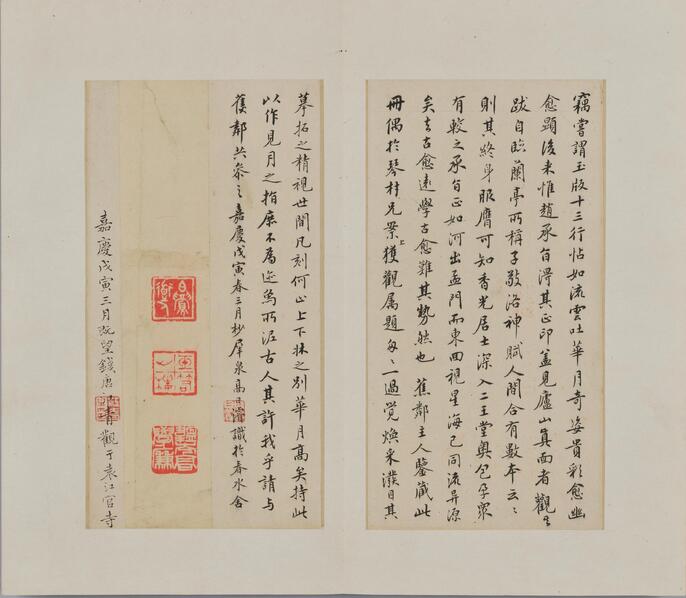 竊嘗謂玉版十三行帖如流雲吐華月奇姿貴彩愈幽
愈顯後來惟趙承旨得其正印蓋見廬山真面者觀其
跋自臨蘭亭所稱子敬洛神賦人間合有數本云云
則其終身服膺可知香光居士深入二王堂奧包孕眾
有較之承旨正如河出孟門而東回視星海已同流異源
矣去古愈遠學古愈難其勢然也 蕉鄰主人鑒藏此
冊偶於琴村兄案上獲觀屬題匆匆一過覺煥采濮目其
摹拓之精視世間凡刻何止上下牀之別華月高矣持此
以作見月之指麾不為迹象所泥古人其許我乎請與
蕉鄰共參之嘉慶戊寅春三月杪犀泉高 識於春水舍
嘉慶戊寅三月既望錢唐 青觀于袁江官寺